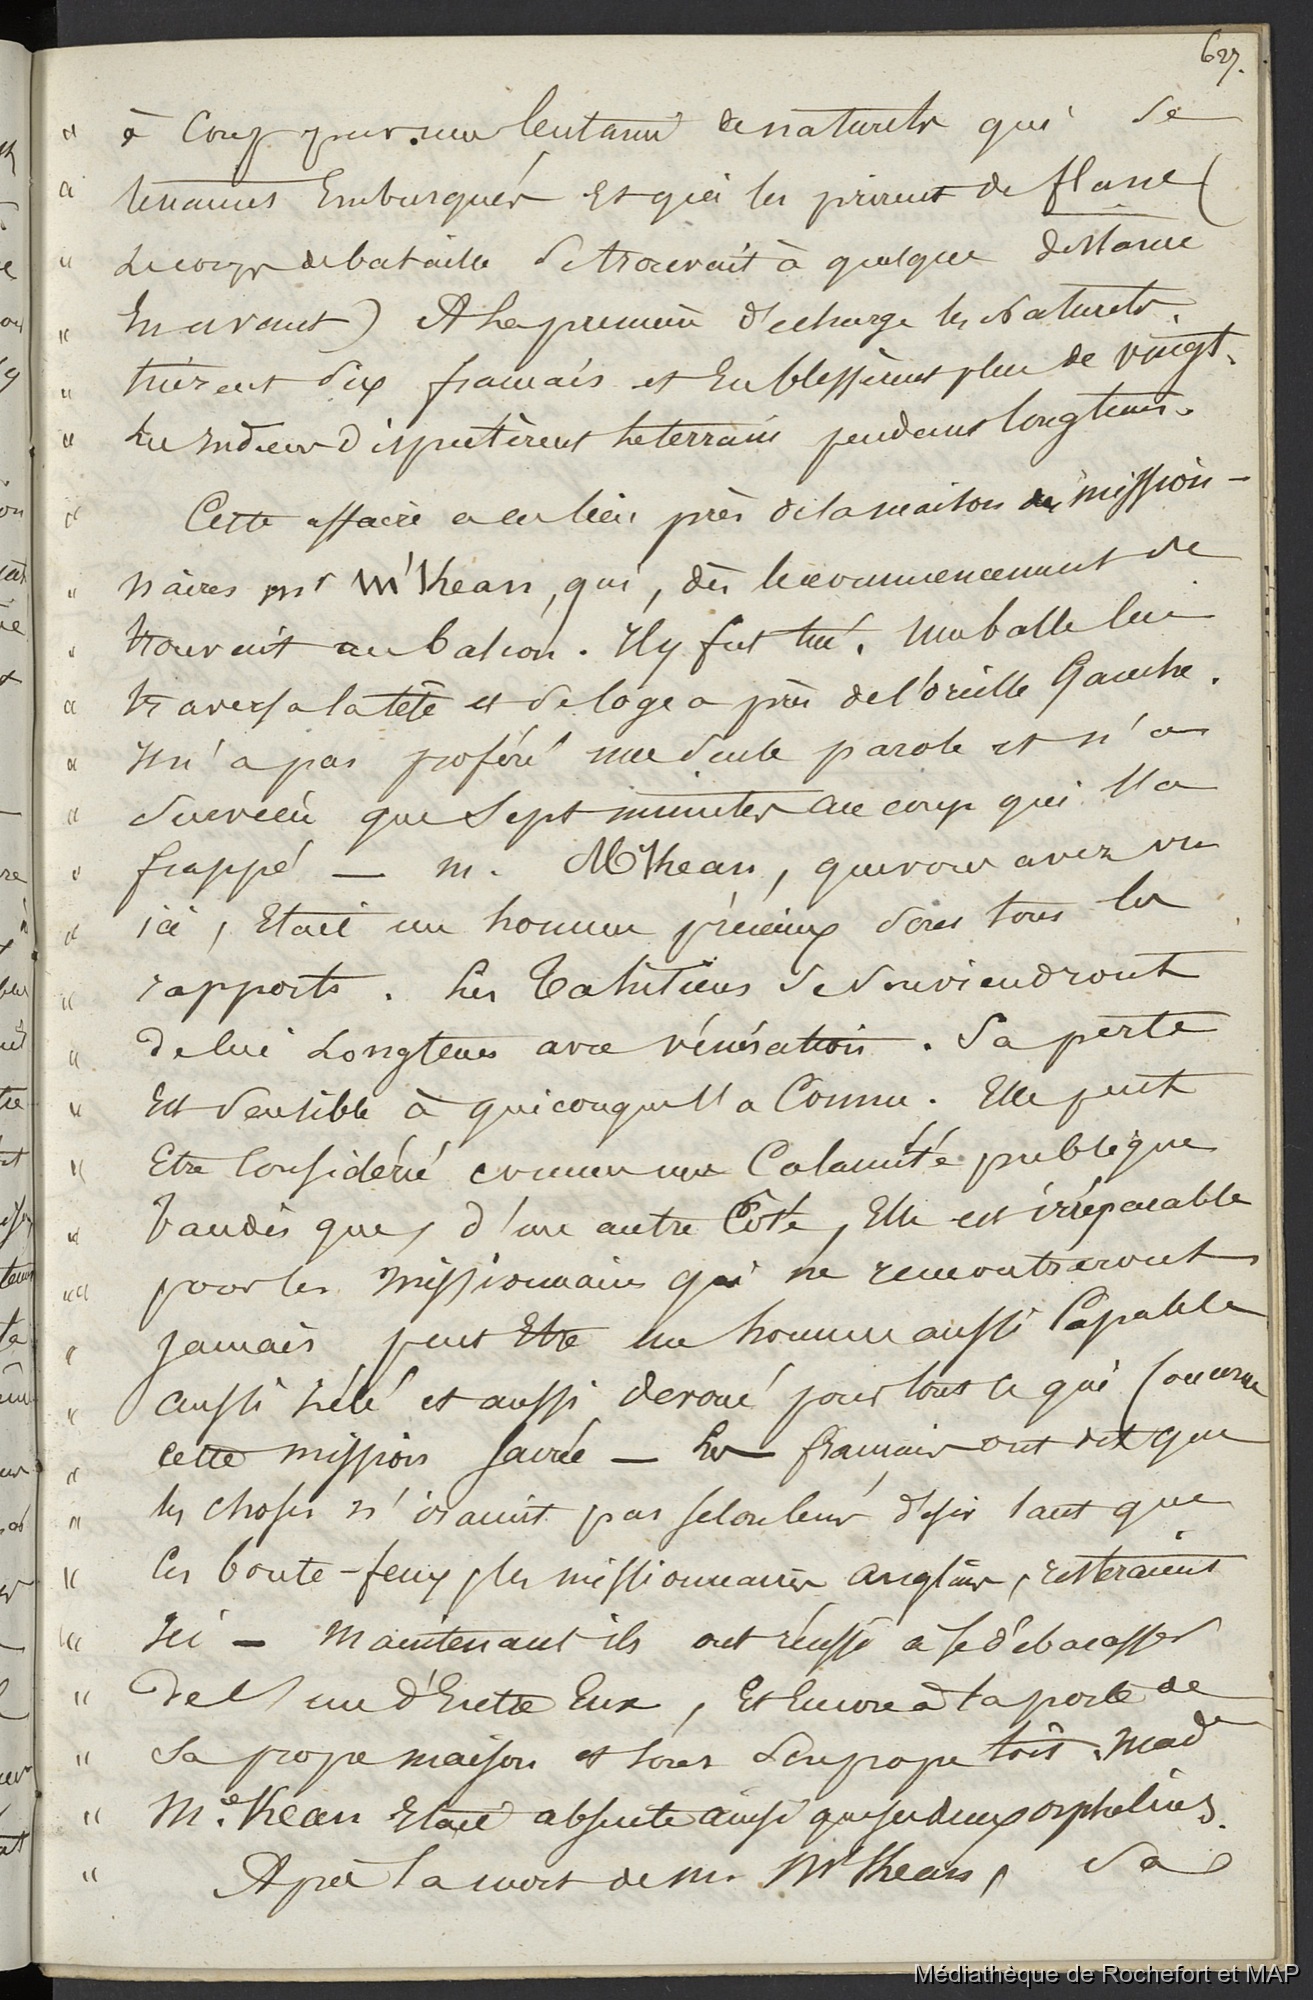 627.
" à coup par une centaine de naturels qui se
" tenaient Embusqués Et qui les prirent de flanc (
" Le corps de bataille se trouvait à quelque distance
" En avant) A la première décharge les Naturels,
" tuèrent dix français et En blessèrent plus de vingt.
" Les Indiens disputèrent le terrain pendant longtems.
" Cette affaire a eu lieu près de la maison des mission-
" naires mr Mc Kean, qui, dès le commencement se
" trouvait au balcon. Il y fut tué. Une balle lui
" traversa la tête et se logea près de l'oreille Gauche.
" Il n'a pas proféré une seule parole et n'a
" survécu que sept minutes au coup qui l'a
" frappé — m. Mc Kean, que vous avez vu
" ici, Etait un homme précieux sous tous les
" rapports. Les Tahitiens se souviendront
" de lui Longtems avec vénération. Sa perte
" Est sensible à quiconque l'a Connu. Elle peut
" Etre Considéré comme une Calamité publique
" tandis que, d'une autre Côté, Elle est irréparable
" pour les missionnaires qui ne rencontreront
" jamais peut Etre un homme aussi Capable
" aussi zélé et aussi dévoué pour tout ce qui Concerne
" cette mission sacrée — Les français ont dit que
" les choses n'iraient pas selon leur désir tant que
" Ces boute-feux, les missionnaires anglais, resteraient
" Ici — Maintenant ils ont réussi à se débarasser
" de l'un d'Entre Eux, Et Encore à la porte de
" sa propre maison et sous son propre toit. Made
" Mc. Kean Etait absente ainsi que ses deux orphelins.
" Après la mort de m. Mc Kean, sa
Médiathèque de Rochefort et MAP